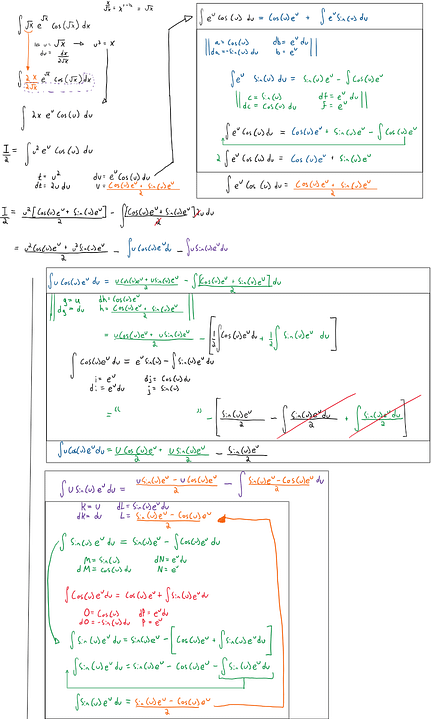 ∫ √x e^√x cos(√x) dx
let u = √x → u² = x
du = dx/2√x
∫ 2x/2√x e^√x cos(√x) dx
∫ 2x e^u cos(u) du
I/2 = ∫ u² e^u cos(u) du
t = u² dv = e^u cos(u) du
dt = 2u du v = (cos(u)e^u + sin(u)e^u)/2
∫ e^u cos(u) du = cos(u)e^u + ∫ e^u sin(u) du
a = cos(u) db = e^u du
da = -sin(u) du b = e^u
∫ e^u sin(u) du = sin(u)e^u - ∫ cos(u)e^u
c = sin(u) df = e^u du
dc = cos(u) du f = e^u
∫ e^u cos(u) du = cos(u)e^u + sin(u)e^u - ∫ cos(u)e^u
2 ∫ e^u cos(u) du = cos(u)e^u + sin(u)e^u
∫ e^u cos(u) du = (cos(u)e^u + sin(u)e^u)/2
I/2 = u²[cos(u)e^u + sin(u)e^u]/2 - ∫ [cos(u)e^u + sin(u)e^u]/2 2u du
= (u²cos(u)e^u + u²sin(u)e^u)/2 - ∫ u cos(u)e^u du - ∫ u sin(u)e^u du
∫ u cos(u)e^u du = (u cos(u)e^u + u sin(u)e^u)/2 - ∫ [cos(u)e^u + sin(u)e^u]/2 du
g = u dh = cos(u)e^u
dg = du h = (cos(u)e^u + sin(u)e^u)/2
= (u cos(u)e^u + u sin(u)e^u)/2 - [1/2 ∫ cos(u)e^u du + 1/2 ∫ sin(u)e^u du]
∫ cos(u)e^u du = e^u sin(u) - ∫ sin(u)e^u du
i = e^u dj = cos(u) du
di = e^u du j = sin(u)
= " " - [sin(u)e^u/2 - ∫ sin(u)e^u du/2 + ∫ sin(u)e^u du/2]
∫ u cos(u)e^u du = u cos(u)e^u/2 + u sin(u)e^u/2 - sin(u)e^u/2
∫ u sin(u)e^u du = (u sin(u)e^u - u cos(u)e^u)/2 - ∫ (sin(u)e^u - cos(u)e^u)/2 du
k = u dL = sin(u)e^u
dk = du L = (sin(u)e^u - cos(u)e^u)/2
∫ sin(u)e^u du = sin(u)e^u - ∫ cos(u)e^u du
M = sin(u) dN = e^u du
dM = cos(u) du N = e^u
∫ cos(u)e^u du = cos(u)e^u + ∫ sin(u)e^u du
O = cos(u) dP = e^u du
dO = -sin(u) du P = e^u
∫ sin(u)e^u du = sin(u)e^u - [cos(u)e^u + ∫ sin(u)e^u du]
∫ sin(u)e^u du = sin(u)e^u - cos(u)e^u - ∫ sin(u)e^u du
∫ sin(u)e^u du = (sin(u)e^u - cos(u)e^u)/2